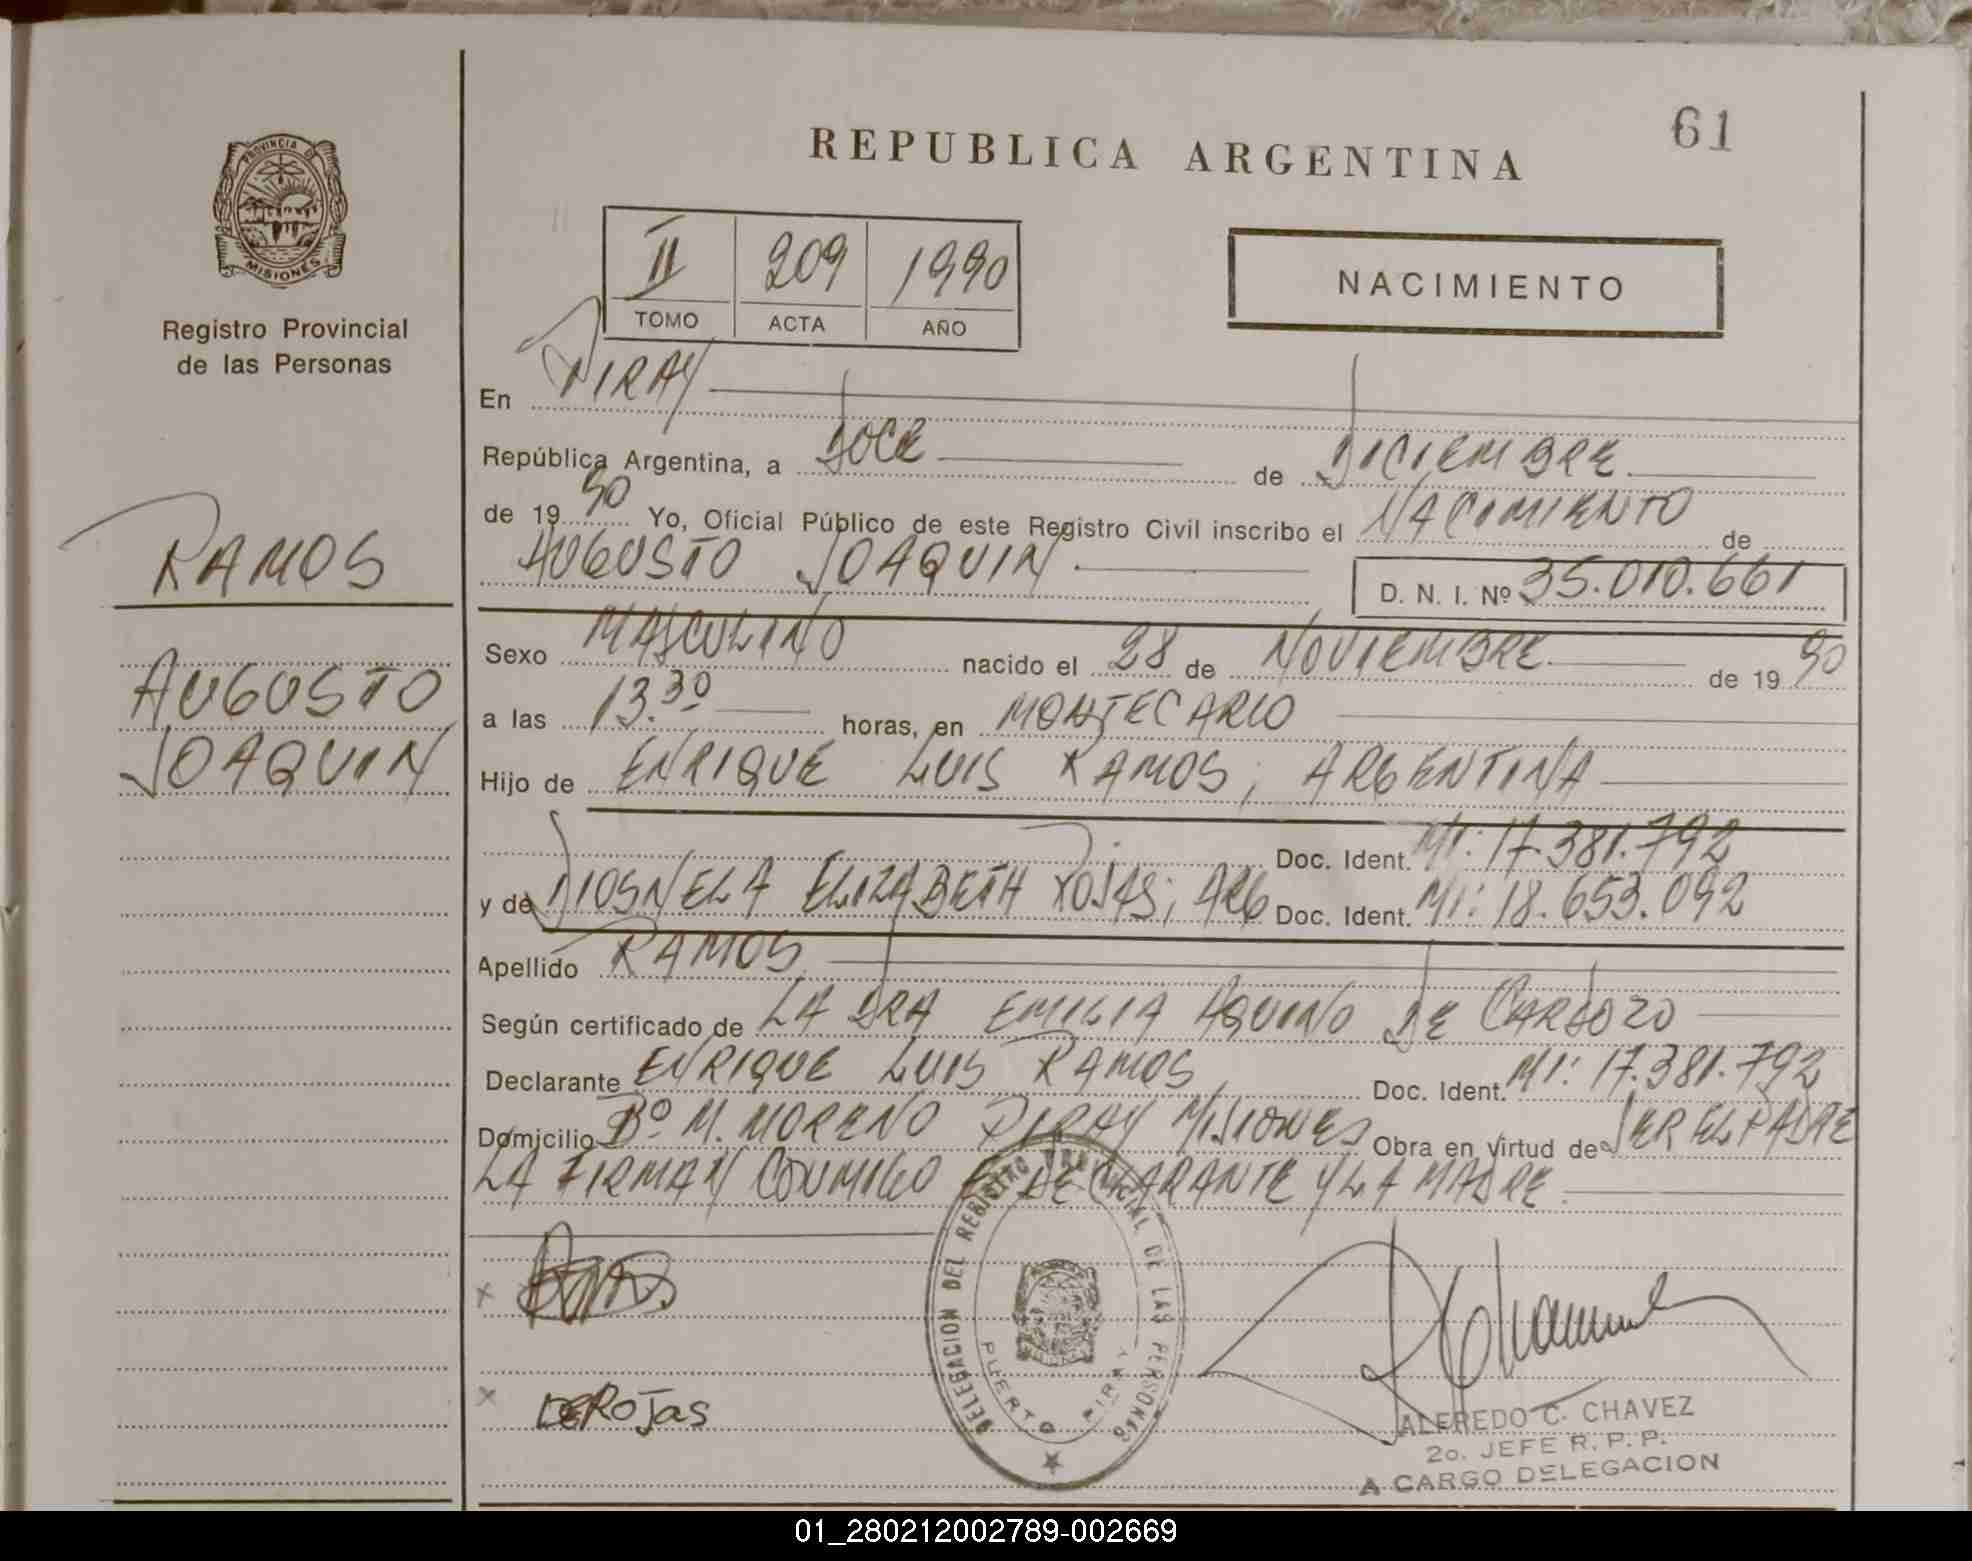 61
REPUBLICA ARGENTINA
PROVINCIA DE
MISIONES
Registro Provincial
de las Personas
II 209 1990
TOMO ACTA AÑO
NACIMIENTO
En PIRAY
República Argentina, a DOCE de DICIEMBRE
de 19 90 Yo, Oficial Público de este Registro Civil inscribo el NACIMIENTO de
AUGUSTO JOAQUIN D. N. I. Nº 35.010.661
RAMOS
AUGUSTO
JOAQUIN
Sexo MASCULINO nacido el 28 de NOVIEMBRE de 19 90
a las 13.30 horas, en MONTECARLO
Hijo de ENRIQUE LUIS RAMOS; ARGENTINA
Doc. Ident. MI: 17.381.792
y de DIOSNELA ELIZABETH ROJAS; ARG Doc. Ident. MI: 18.653.092
Apellido RAMOS
Según certificado de LA DRA EMILIA AQUINO DE CARDOZO
Declarante ENRIQUE LUIS RAMOS Doc. Ident. MI: 17.381.792
Domicilio Bº M. MORENO PIRAY MISIONES Obra en virtud de SER EL PADRE
LA FIRMAN CONMIGO E DECLARANTE Y LA MADRE
DELEGACION DEL REGISTRO PROVINCIAL DE LAS PERSONAS
PUERTO PIRAY
x
x DEROJAS
ALFREDO C. CHAVEZ
2o. JEFE R. P. P.
A CARGO DELEGACION
01_280212002789-002669